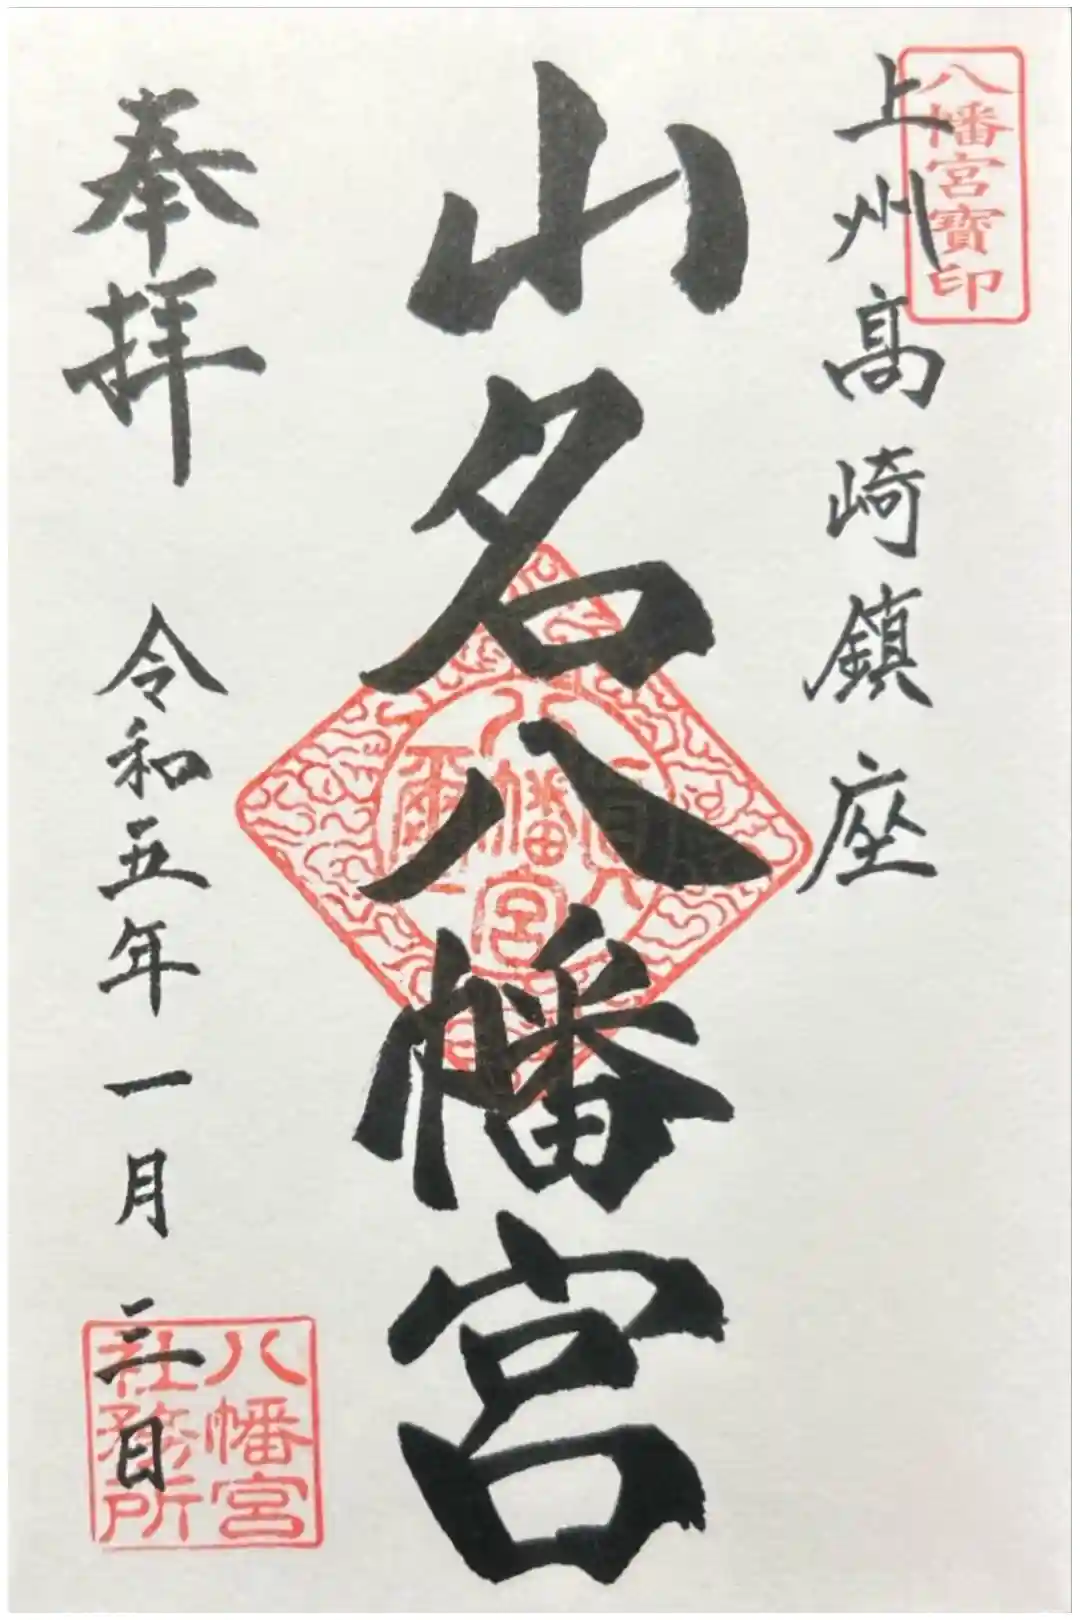 八幡宮寶印
上州髙崎鎮座
山名八幡宮
八幡宮
奉拝
令和五年一月三日
八幡宮
社務所